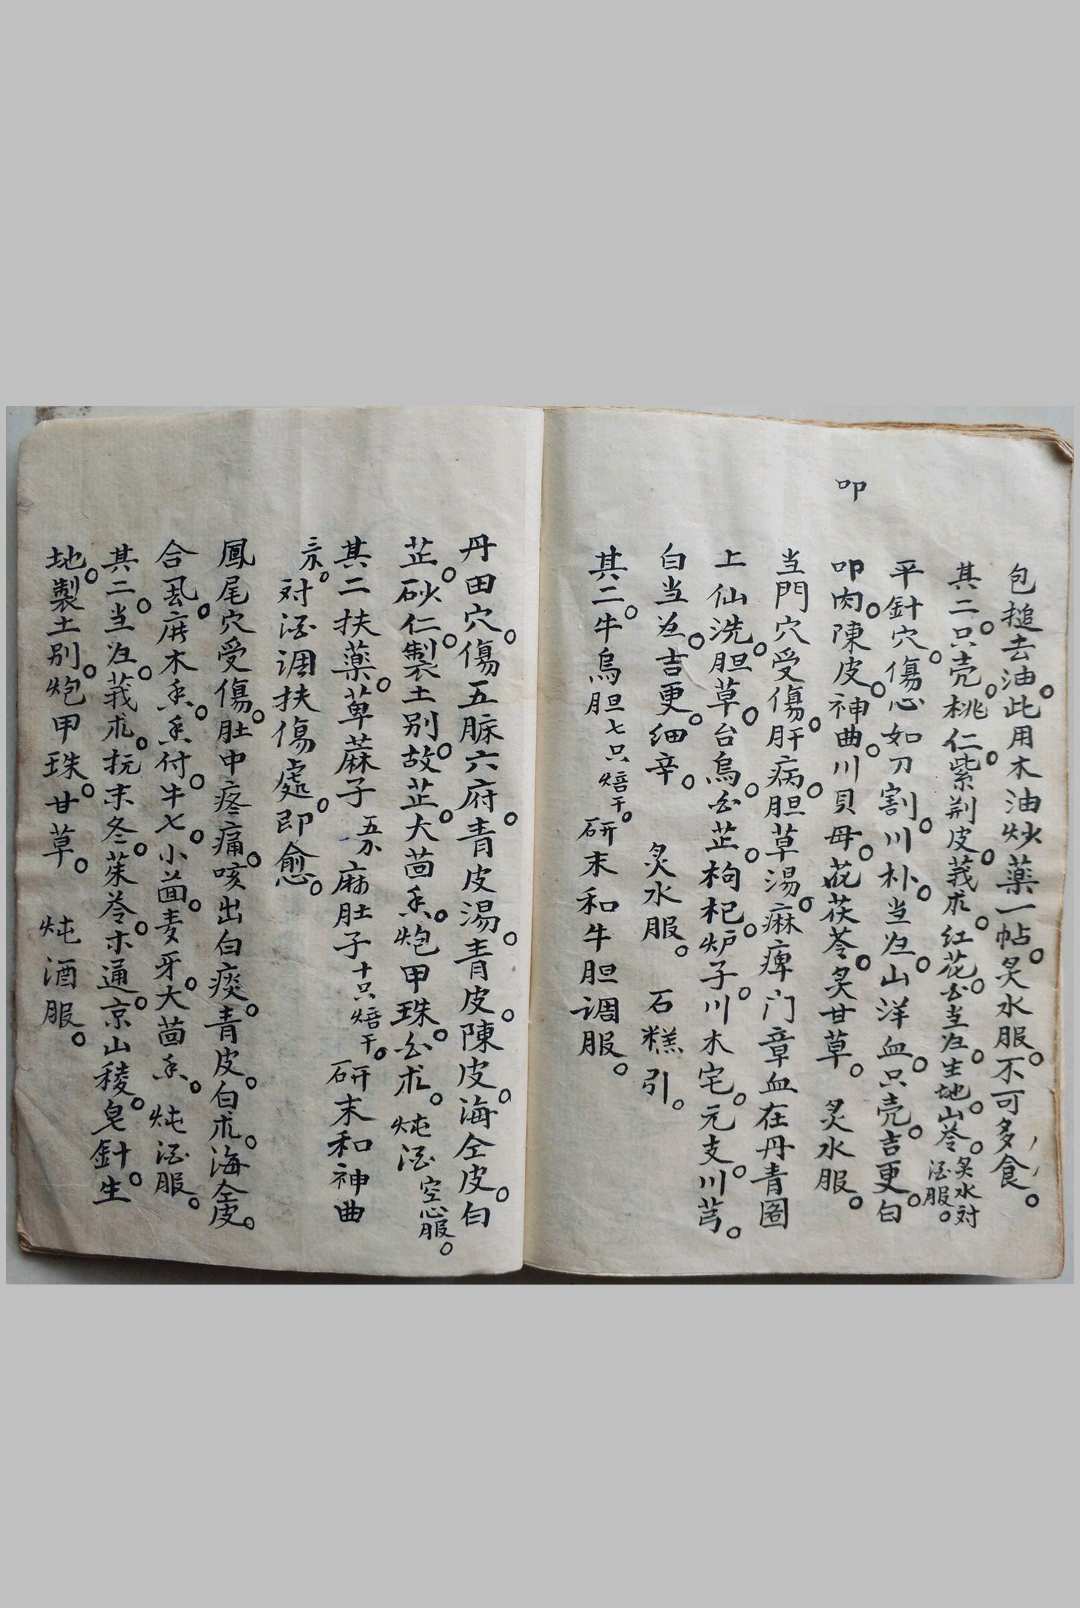 叩
包搥去油。此用木油炒藥一帖。炙水服。不可多食。
其二。只壳。桃仁。紫荆皮。莪朮。红花。当归。生地。山苓。炙水对酒服。
平針穴。傷心如刀割。川朴。当归。山洋血。只壳。吉更。白
叩肉。陳皮。神曲。川貝母。茯苓。炙甘草。炙水服。
当門穴受傷。肝病胆草湯。麻痺门章血在丹青圖
上仙洗。胆草。台烏。白芷。枸杞。炉子。川木宅。元支。川芎。
白当归。吉更。细辛。炙水服。石糕引。
其二。牛烏胆七只熖干。研末和牛胆调服。
丹田穴。傷五脈六府。青皮湯。青皮。陳皮。海仝皮。白
芷。砂仁。製土别。故芷。大茴香。炮甲珠。白朮。炖酒空心服。
其二扶藥。萆蔴子五分麻肚子十只熖干。研末和神曲
京。对酒调扶傷處。即愈。
鳳尾穴受傷。肚中疼痛。咳出白痰。青皮。白朮。海仝皮。
合風。唐木香。香付。牛七。小茴。麦牙。大茴香。炖酒服。
其二。当归。莪朮。抚末冬。茱苓。木通。京山稜。皂針。生
地。製土别。炮甲珠。甘草。炖酒服。